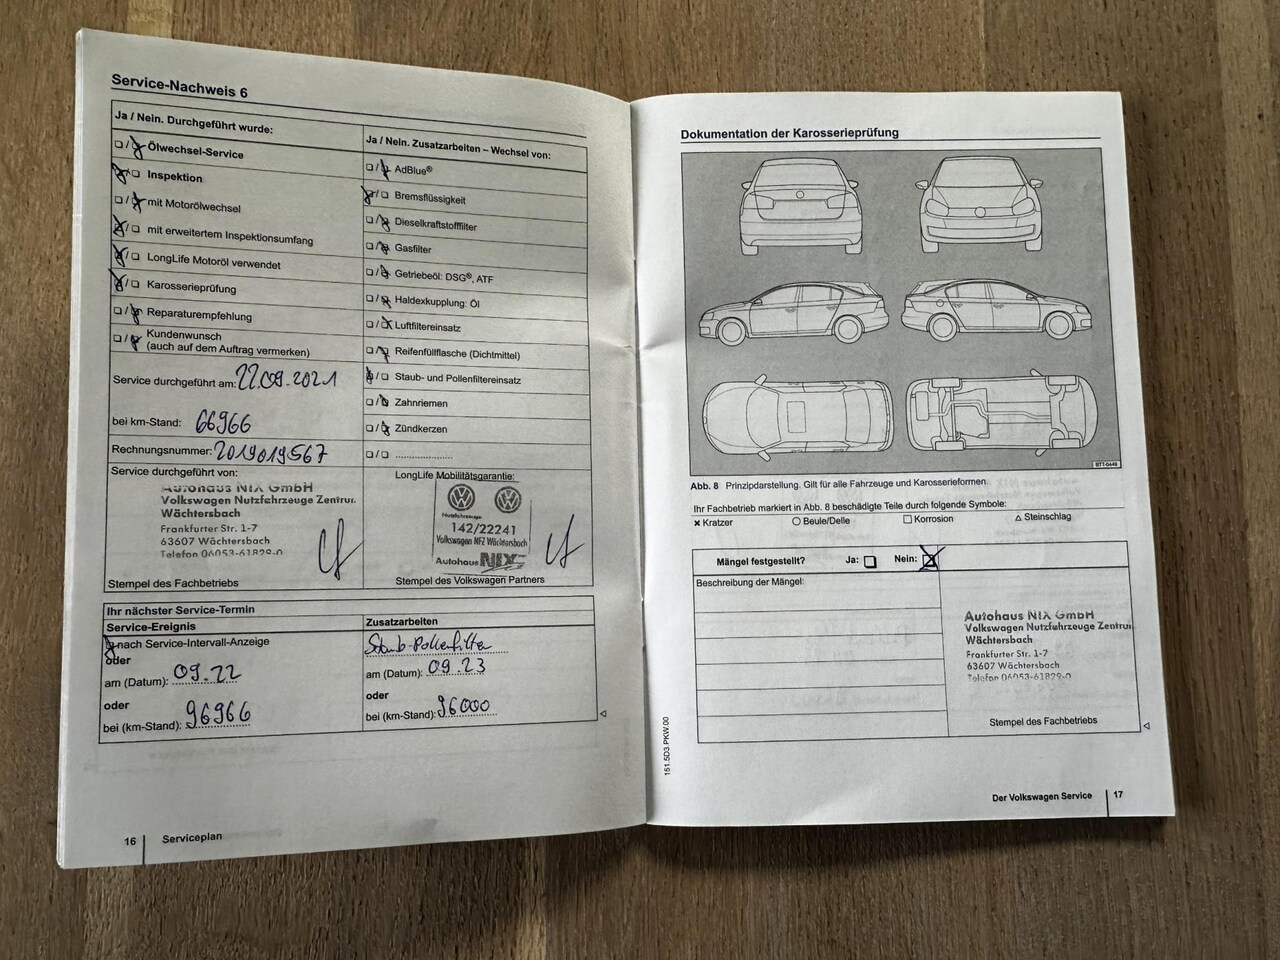 Service-Nachweis 6
Ja / Nein. Durchgeführt wurde:
❑ / ❑ Ölwechsel-Service
❑ / ❑ Inspektion
❑ / ❑ mit Motorölwechsel
❑ / ❑ mit erweitertem Inspektionsumfang
❑ / ❑ LongLife Motoröl verwendet
❑ / ❑ Karosserieprüfung
❑ / ❑ Reparaturempfehlung
❑ / ❑ Kundenwunsch
(auch auf dem Auftrag vermerken)
Service durchgeführt am: 22.09.2021
bei km-Stand: 66966
Rechnungsnummer: 2019019567
Service durchgeführt von:
Autohaus NIX GmbH
Volkswagen Nutzfahrzeuge Zentrum
Wächtersbach
Frankfurter Str. 1-7
63607 Wächtersbach
Telefon 06053-61829-0
Stempel des Fachbetriebs
Ja / Nein. Zusatzarbeiten – Wechsel von:
❑ / ❑ AdBlue®
❑ / ❑ Bremsflüssigkeit
❑ / ❑ Dieselkraftstofffilter
❑ / ❑ Gasfilter
❑ / ❑ Getriebeöl: DSG®, ATF
❑ / ❑ Haldexkupplung: Öl
❑ / ❑ Luftfiltereinsatz
❑ / ❑ Reifenfüllflasche (Dichtmittel)
❑ / ❑ Staub- und Pollenfiltereinsatz
❑ / ❑ Zahnriemen
❑ / ❑ Zündkerzen
❑ / ❑ .....................
LongLife Mobilitätsgarantie:
Nutzfahrzeuge
142/22241
Volkswagen NFZ Wächtersbach
Autohaus NIX
Stempel des Volkswagen Partners
Ihr nächster Service-Termin
Service-Ereignis
nach Service-Intervall-Anzeige
oder
am (Datum): 09.22
oder
bei (km-Stand): 96966
Zusatzarbeiten
Staub-Pollenfilter
am (Datum): 09.23
oder
bei (km-Stand): 96000
16 Serviceplan
Dokumentation der Karosserieprüfung
BTT-0449
Abb. 8 Prinzipdarstellung. Gilt für alle Fahrzeuge und Karosserieformen.
Ihr Fachbetrieb markiert in Abb. 8 beschädigte Teile durch folgende Symbole:
× Kratzer ○ Beule/Delle □ Korrosion △ Steinschlag
Mängel festgestellt? Ja: ❑ Nein: ☒
Beschreibung der Mängel:
Autohaus NIX GmbH
Volkswagen Nutzfahrzeuge Zentrum
Wächtersbach
Frankfurter Str. 1-7
63607 Wächtersbach
Telefon 06053-61829-0
Stempel des Fachbetriebs
151.5D3.PKW.00
Der Volkswagen Service 17